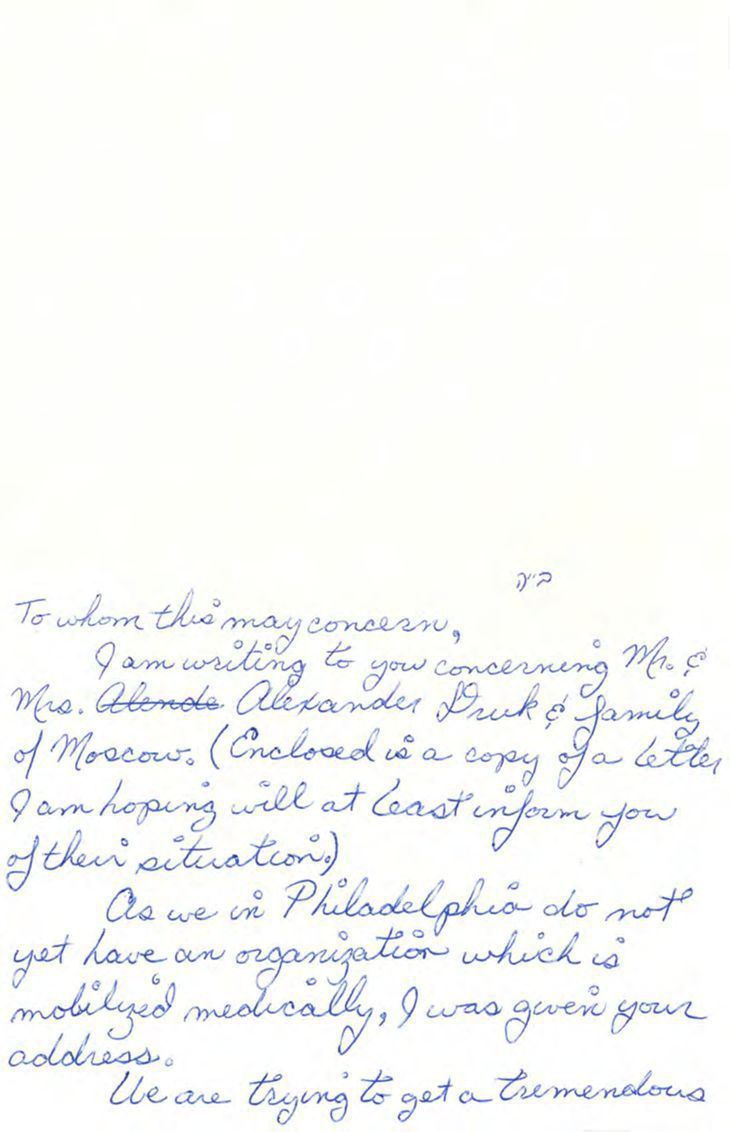 ב״ה
To whom this may concern,
I am writing to you concerning Mr. &
Mrs. Alende Alexander Druk & family
of Moscow. (Enclosed is a copy of a letter
I am hoping will at least inform you
of their situation.)
As we in Philadelphia do not
yet have an organization which is
mobilized medically, I was given your
address.
We are trying to get a tremendous